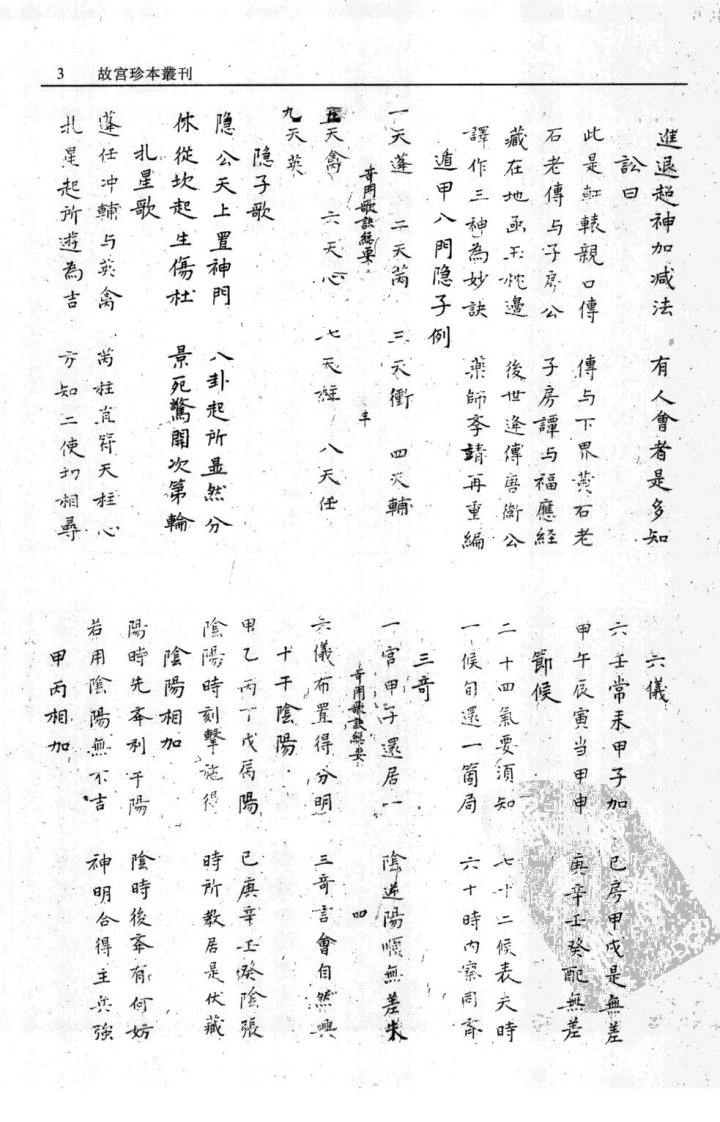 3 故宮珍本叢刊
進退超神加減法 有人會者是多知
訟曰
此是軒轅親口傳 傳与下界黃石老
石老傳与子房公 子房譚与福應経
藏在地函玉枕邊 後世逢傳唐衞公
譯作三神為妙訣 薬師李靖再重編
遁甲八門隐子例
一天蓬 二天芮 三天衝 四天輔
奇門歌訣総要 三
五天禽 六天心 七天柱 八天任
九天英
隐子歌
隐公天上置神門 八卦起所显然分
休從坎起生傷杜 景死驚開次第輪
九星歌
蓬任冲輔与英禽 芮柱 天柱心
九星起所遊為吉 方知二使切相尋
六儀
六壬常来甲子加 己房甲戌是無差
甲午辰寅当甲申 庚辛壬癸配無差
節候
二十四氣要須知 七十二候表天時
一候旬還一箇局 六十時内 同斎
三奇
一宮甲子還居一 陰逆陽順無差朱
奇門歌訣総要 四
六儀布置得分明 三奇言會自然興
十干陰陽
甲乙丙丁戊属陽 己庚辛壬癸陰張
陰陽時刻擊施得 時所教居是伏藏
陰陽相加
陽時先奉利于陽 陰時後奉有何妨
若用陰陽無不吉 神明合得主兵強
甲丙相加